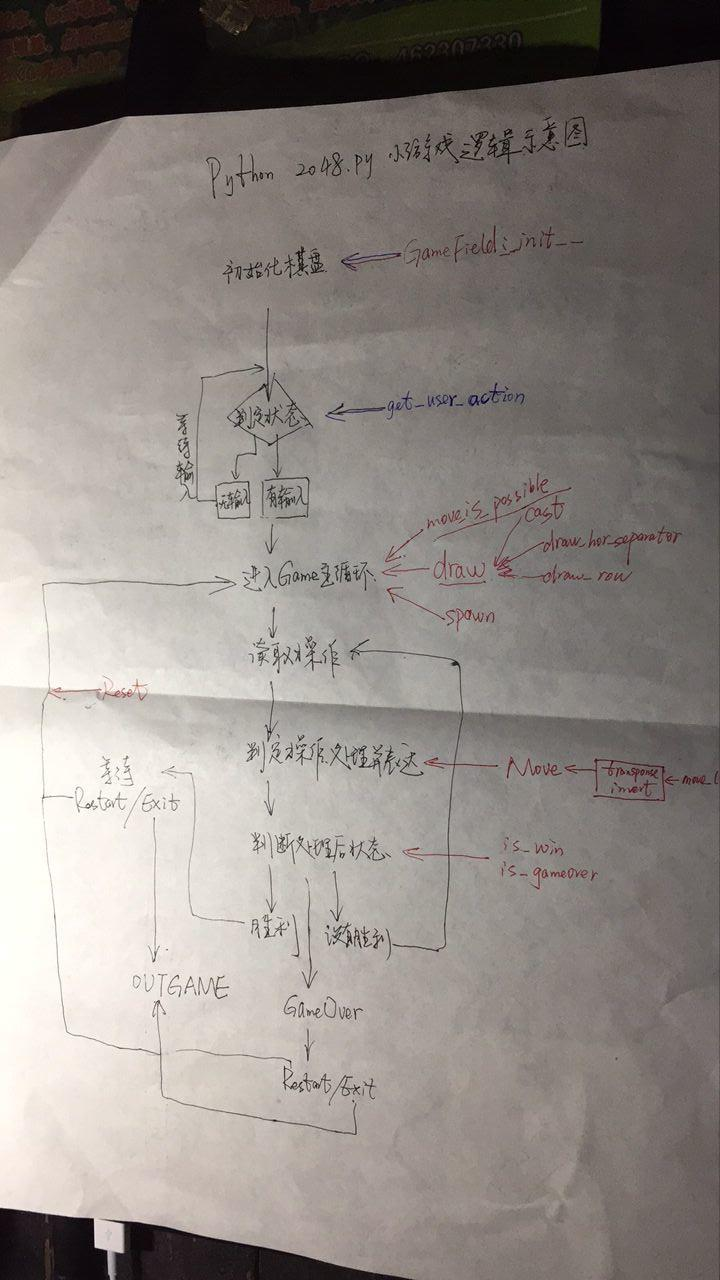 462307330
Python 2048.py 小游戏逻辑示意图
初始化棋盘
GameField:__init__
判定状态
get_user_action
等待输入
无输入
有输入
move_is_possible
cast
draw
draw_hor_separator
draw_row
spawn
进入Game主循环
读取操作
Reset
判定操作,处理并表达
Move
transpose
invert
move_l
等待
Restart/Exit
判断处理后状态
is_win
is_gameover
胜利
没有胜利
OUTGAME
GameOver
Restart/Exit